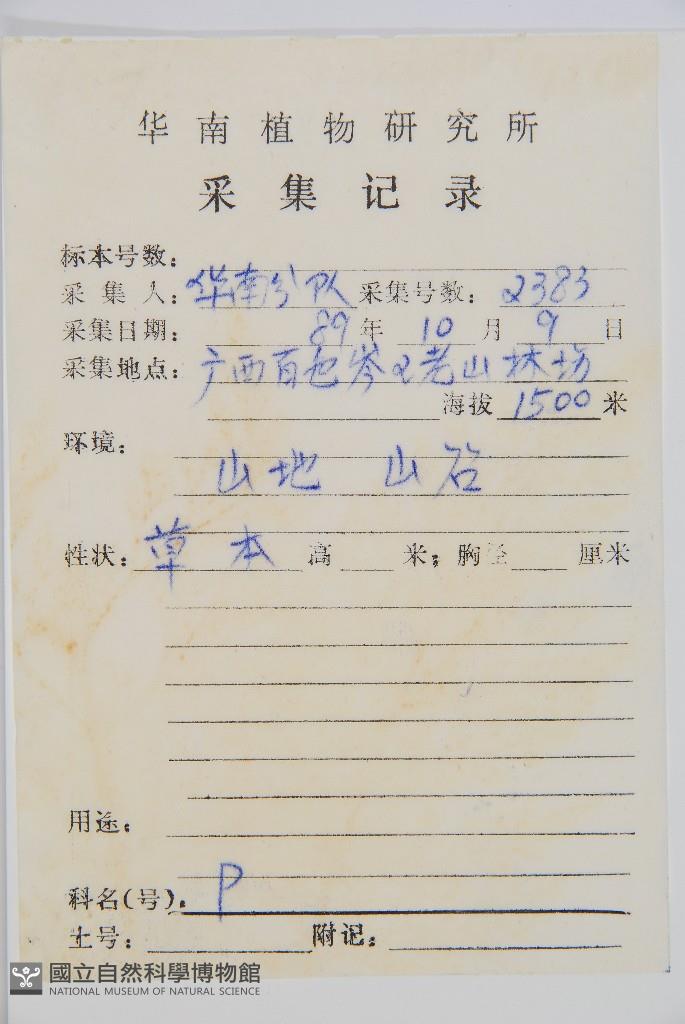 华南植物研究所
采集记录
标本号数:
采集人: 华南分队 采集号数: 2383
采集日期: 89年 10月 9日
采集地点: 广西百色岑王老山林场
海拔 1500 米
环境:
山地 山谷
性状: 草本 高 米; 胸径 厘米
用途:
科名(号). P
土号: 附记:
國立自然科學博物館
NATIONAL MUSEUM OF NATURAL SCIENCE